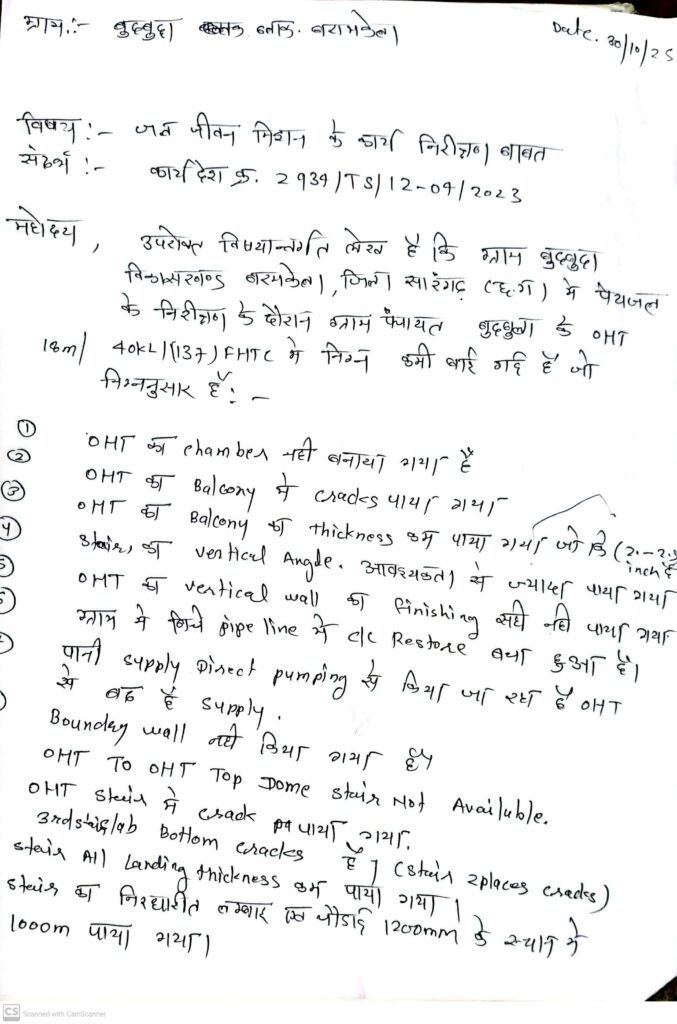 ग्राम :- बुदबुदा ब्लाक. बरामकेला
Date. 30/10/25
विषय :- जल जीवन मिशन के कार्य निरीक्षण बाबत
संदर्भ :- कार्य देश क्र. 2934/TS/12-04/2023
महोदय, उपरोक्त विषयान्तर्गत लेख है कि ग्राम बुदबुदा
विकासखण्ड बरमकेला, जिला सारंगढ़ (छ.ग) में पेयजल
के निरीक्षण के दौरान ग्राम पंचायत के OHT
18m/ 40KL/(137) FHTC में निम्न कमी पाई गई है जो
निम्ननुसार है :-
① OHT का chamber नही बनाया गया है
② OHT का Balcony में cracks पाया गया
③ OHT का Balcony का thickness कम पाया गया जो कि (2.-2.5
inch है
④ stair, का vertical Angle. आवश्यकता से ज्यादा पाया गया
OHT का vertical wall का finishing सही नही पाया गया
ग्राम में pipe line में c/c Restore बचा हुआ है।
पानी supply Direct pumping से किया जा रहा है OHT
से बंद है supply.
Boundry wall नही किया गया है
OHT TO OHT Top Dome stair Not Available.
OHT stair में crack पाया गया.
3rd slab Bottom cracks है। (stair 2places cracks)
stair All Landing thickness कम पाया गया।
stair का निश्चारीत चौडाई 1200mm के स्थान में
1000m पाया गया।
CS Scanned with CamScanner